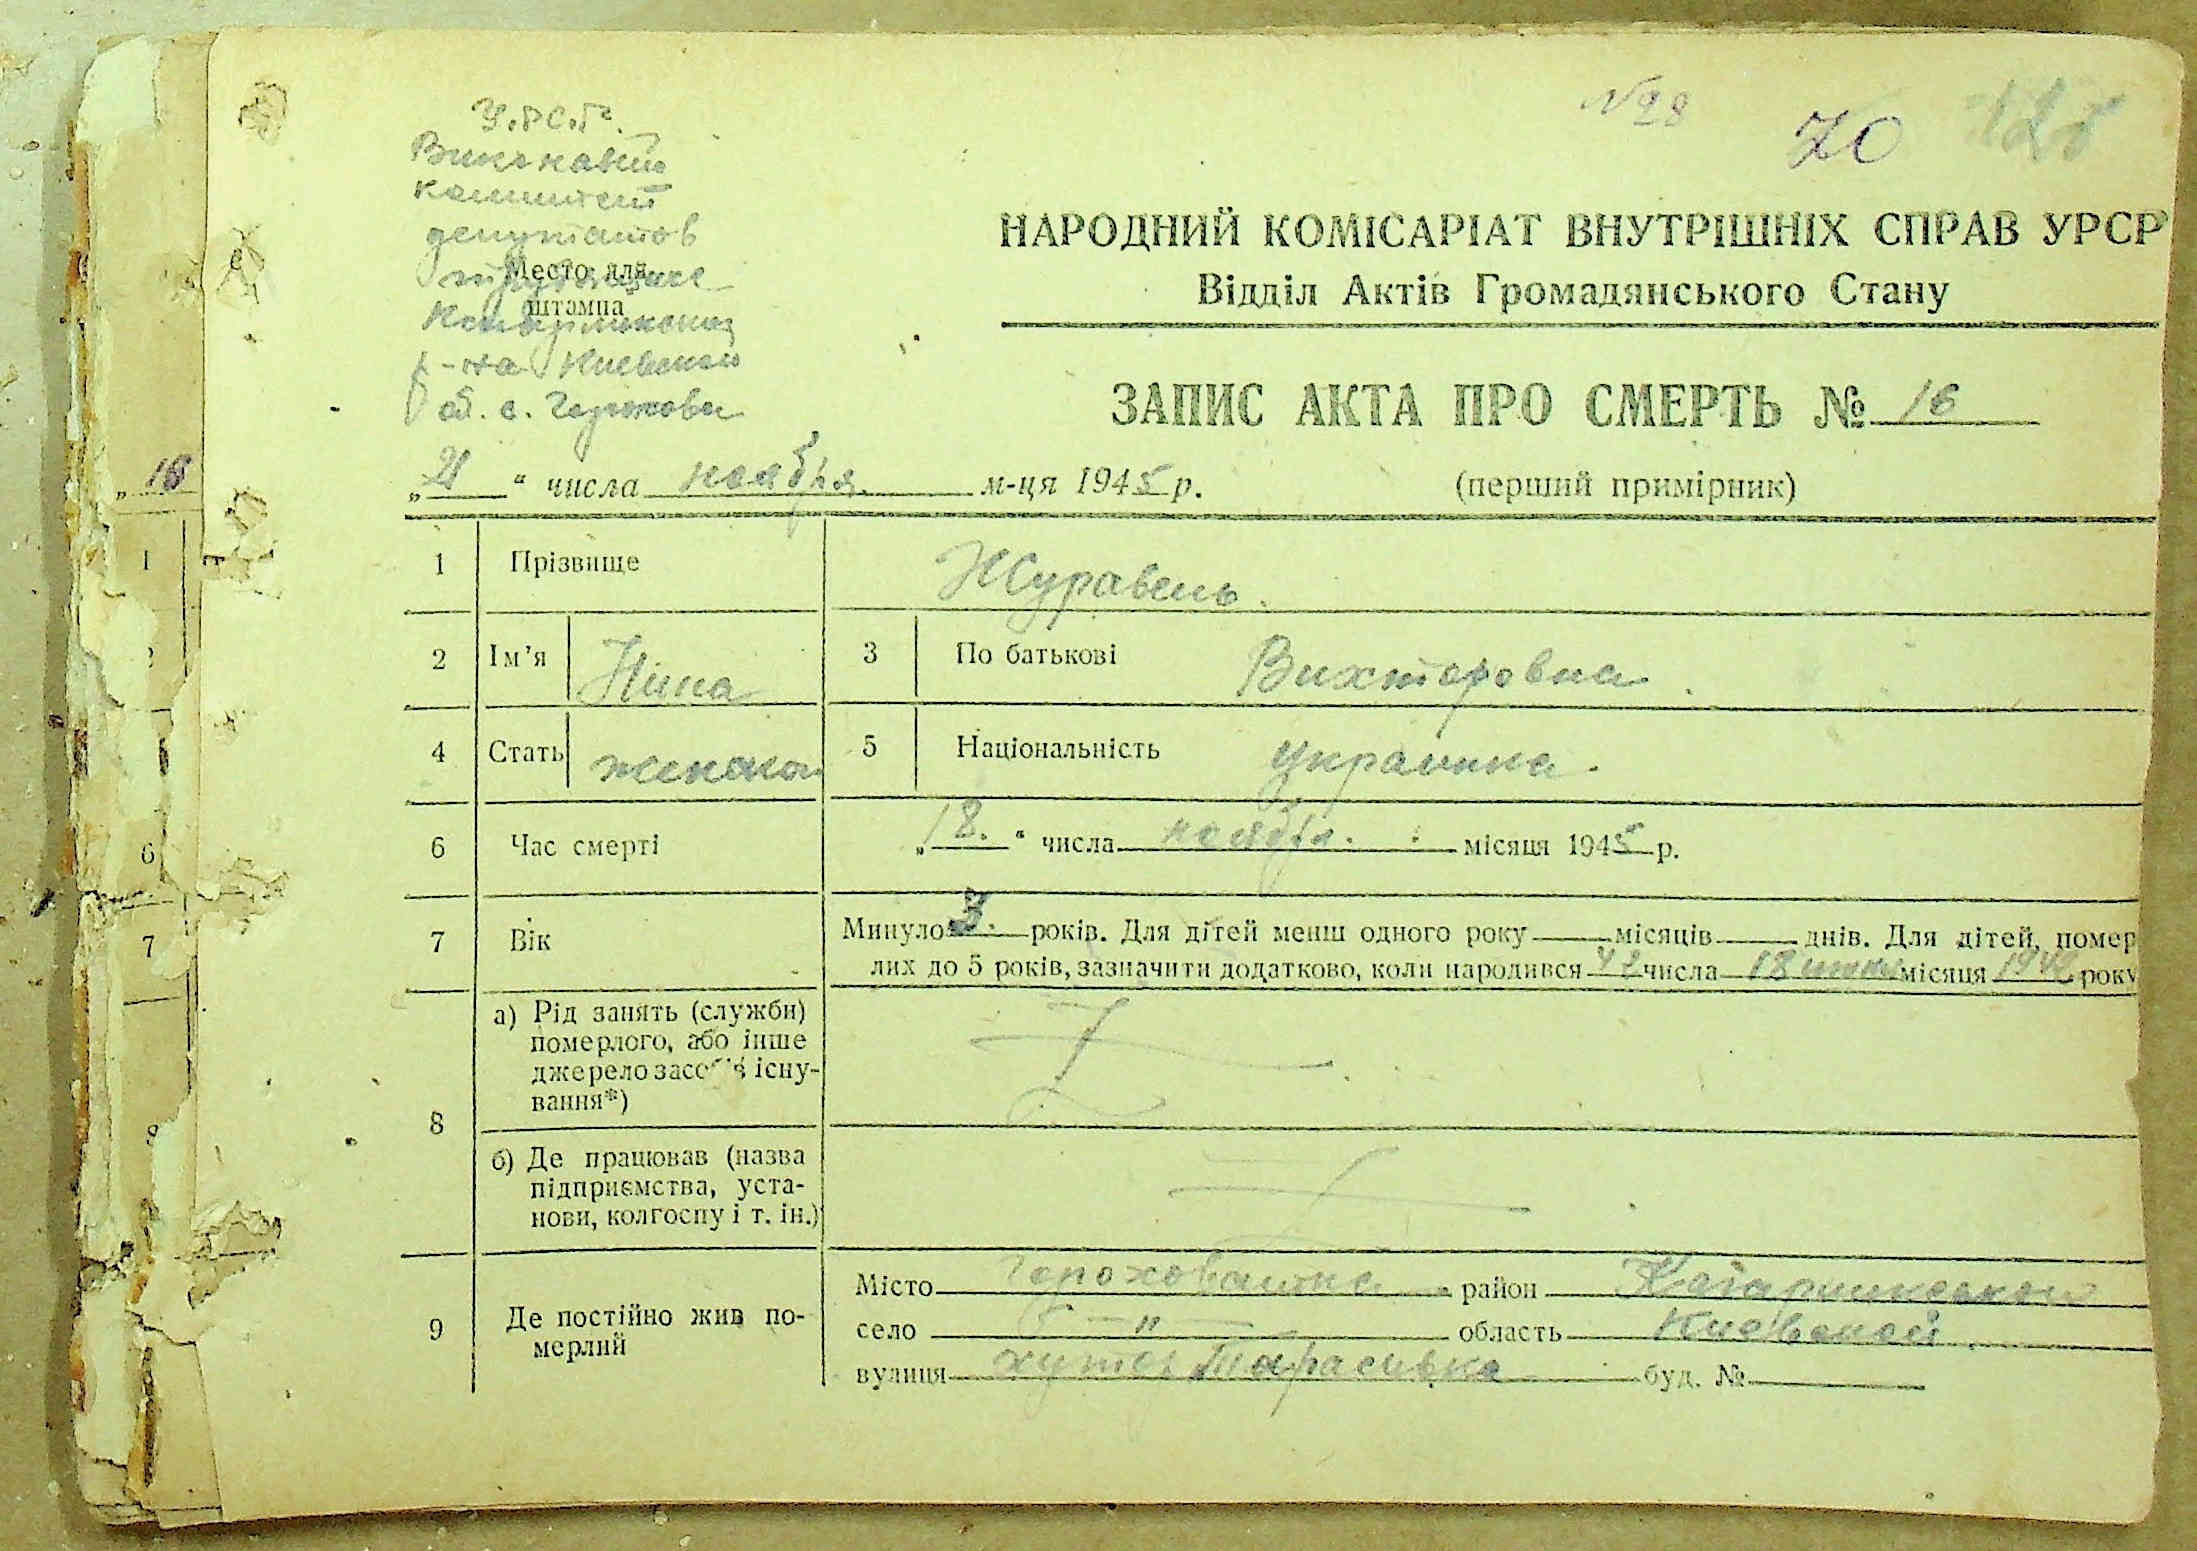 № 28
70
У.Р.С.Р.
комитет
депутатов
Место для
штампа
р-на Киевской
об. с.
НАРОДНИЙ КОМІСАРІАТ ВНУТРІШНІХ СПРАВ УРСР
Відділ Актів Громадянського Стану
ЗАПИС АКТА ПРО СМЕРТЬ № 16
„ 21 “ числа ноября м-ця 1945 р.
(перший примірник)
„ 16
1
6
7
1 Прізвище Журавель.
2 Ім’я Нина 3 По батькові Вихторовна
4 Стать женская 5 Національність украинка.
6 Час смерті „ 18. “ числа ноября. місяця 1945 р.
7 Вік Минуло 3. років. Для дітей менш одного року місяців днів. Для дітей, помер
лих до 5 років, зазначити додатково, коли народився числа 18 місяця 1942 року
8
а) Рід занять (служби)
померлого, або інше
джерело засобів існу-
вання*)
б) Де працював (назва
підприємства, уста-
нови, колгоспу і т. ін.)
9 Де постійно жив по-
мерлий
Місто Гороховатка район Кагарликской
село — „ — область Киевской
вулиця хутор Тарасивка буд. №